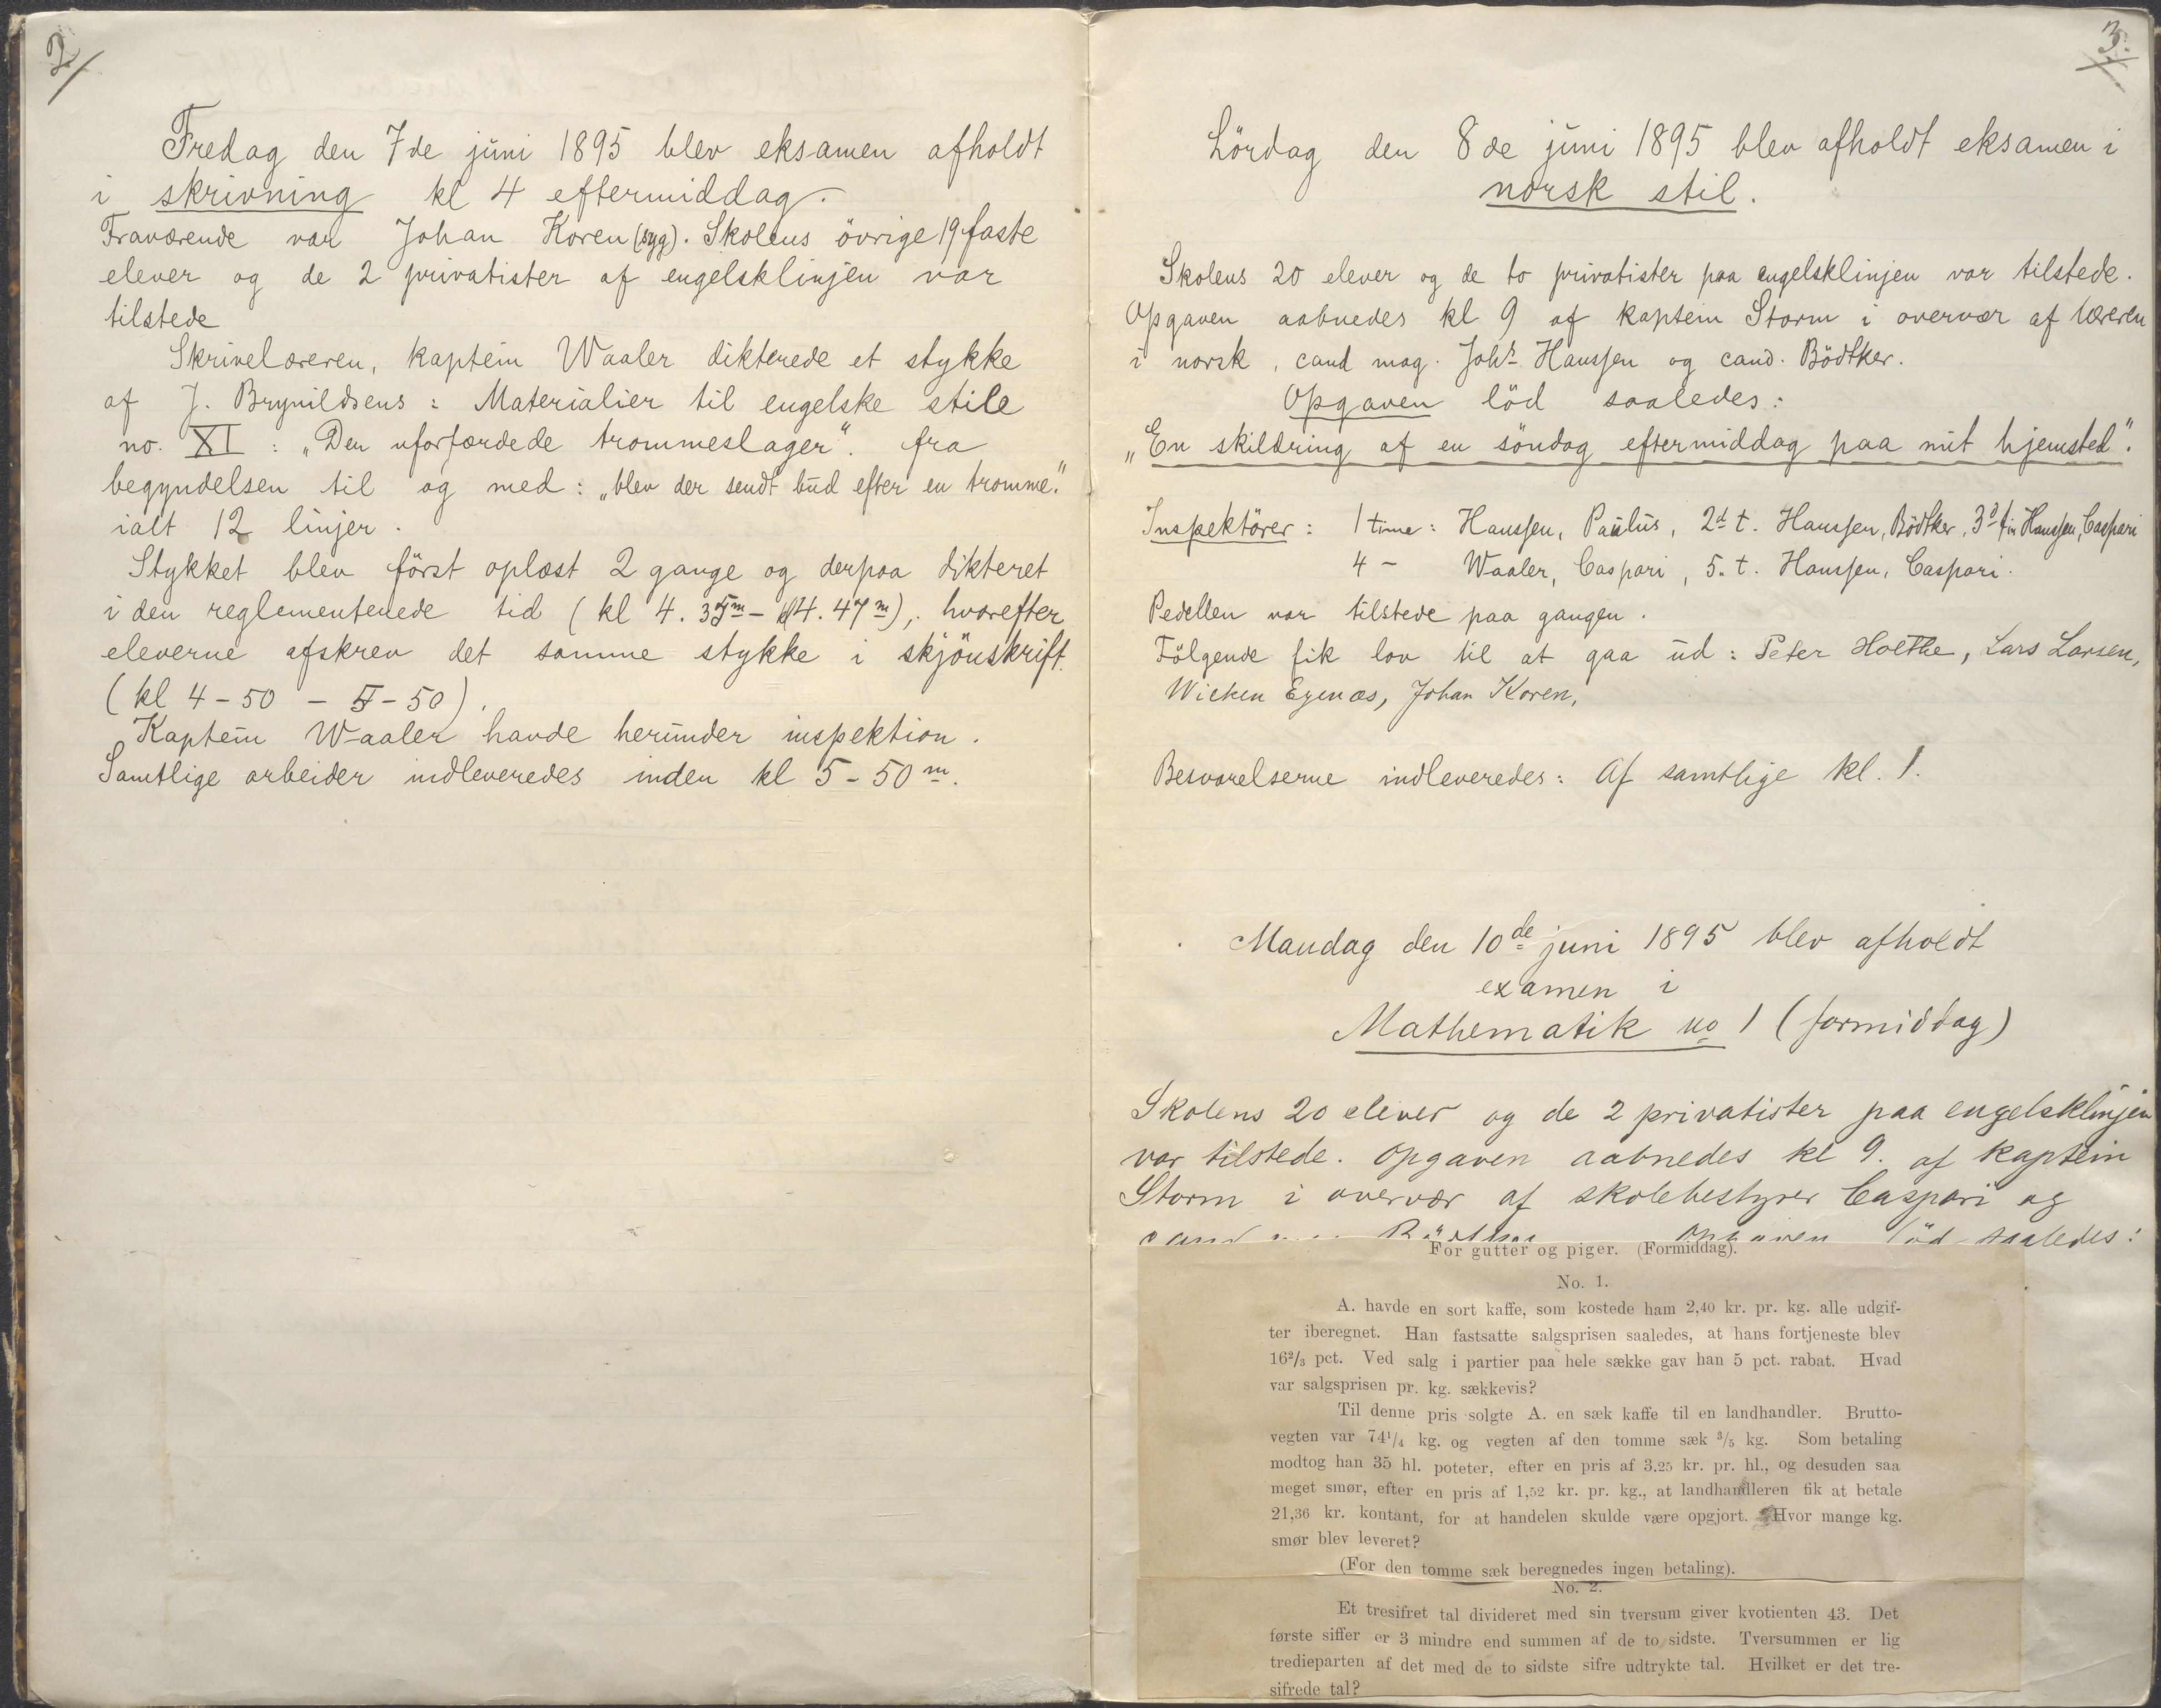 2/
Fredag den 7de juni 1895 blev eksamen afholdt
i skrivning kl 4 eftermiddag.
Fraværende var Johan Koren (syg). Skolens övrige 19 faste
elever og de 2 privatister af engelsklinjen var
tilstede
Skrivelæreren, kaptein Waaler dikterede et stykke
af J. Brynildsens : Materialier til engelske stile
no. XI : „Den uforfærdede trommeslager“. fra
begyndelsen til og med : „blev der sendt bud efter en tromme.“
ialt 12 linjer.
Stykket blev först oplæst 2 gange og derpaa dikteret
i den reglementerede tid (kl 4. 35m – kl 4. 47m), hvorefter
eleverne afskrev det samme stykke i skjönskrift.
(kl 4-50 – 5-50).
Kaptein Waaler havde herunder inspektion.
Samtlige arbeider indleveredes inden kl 5-50m.
3.
Lördag den 8de juni 1895 blev afholdt eksamen i
norsk stil.
Skolens 20 elever og de to privatister paa engelsklinjen var tilstede.
Opgaven aabnedes kl 9 af kaptein Storm i overvær af læreren
i norsk, cand mag. Johs Hanssen og cand. Bödtker.
Opgaven löd saaledes:
„En skildring af en söndag eftermiddag paa mit hjemsted“.
Inspektörer : 1 time : Hanssen, Paulus, 2d t. Hanssen, Bödtker, 3d tim Hanssen, Caspari
4 – Waaler, Caspari, 5. t. Hanssen, Caspari.
Pedellen var tilstede paa gangen.
Fölgende fik lov til at gaa ud : Peter Holthe, Lars Larsen,
Wicken Egenæs, Johan Koren,
Besvarelserne indleveredes : Af samtlige kl. 1.
Mandag den 10de juni 1895 blev afholdt
examen i
Mathematik no 1 (formiddag)
Skolens 20 elever og de 2 privatister paa engelsklinjen
var tilstede. Opgaven aabnedes kl 9. af kaptein
Storm i overvær af skolebestyrer Caspari og
cand Bödtker Opgaven löd saaledes:
For gutter og piger. (Formiddag).
No. 1.
A. havde en sort kaffe, som kostede ham 2,40 kr. pr. kg. alle udgif-
ter iberegnet. Han fastsatte salgsprisen saaledes, at hans fortjeneste blev
16²/₃ pct. Ved salg i partier paa hele sække gav han 5 pct. rabat. Hvad
var salgsprisen pr. kg. sækkevis?
Til denne pris solgte A. en sæk kaffe til en landhandler. Brutto-
vegten var 74¹/₄ kg. og vegten af den tomme sæk ³/₅ kg. Som betaling
modtog han 35 hl. poteter, efter en pris af 3,25 kr. pr. hl., og desuden saa
meget smør, efter en pris af 1,52 kr. pr. kg., at landhandleren fik at betale
21,36 kr. kontant, for at handelen skulde være opgjort. Hvor mange kg.
smør blev leveret?
(For den tomme sæk beregnedes ingen betaling).
No. 2.
Et tresifret tal divideret med sin tversum giver kvotienten 43. Det
første siffer er 3 mindre end summen af de to sidste. Tversummen er lig
tredieparten af det med de to sidste sifre udtrykte tal. Hvilket er det tre-
sifrede tal?